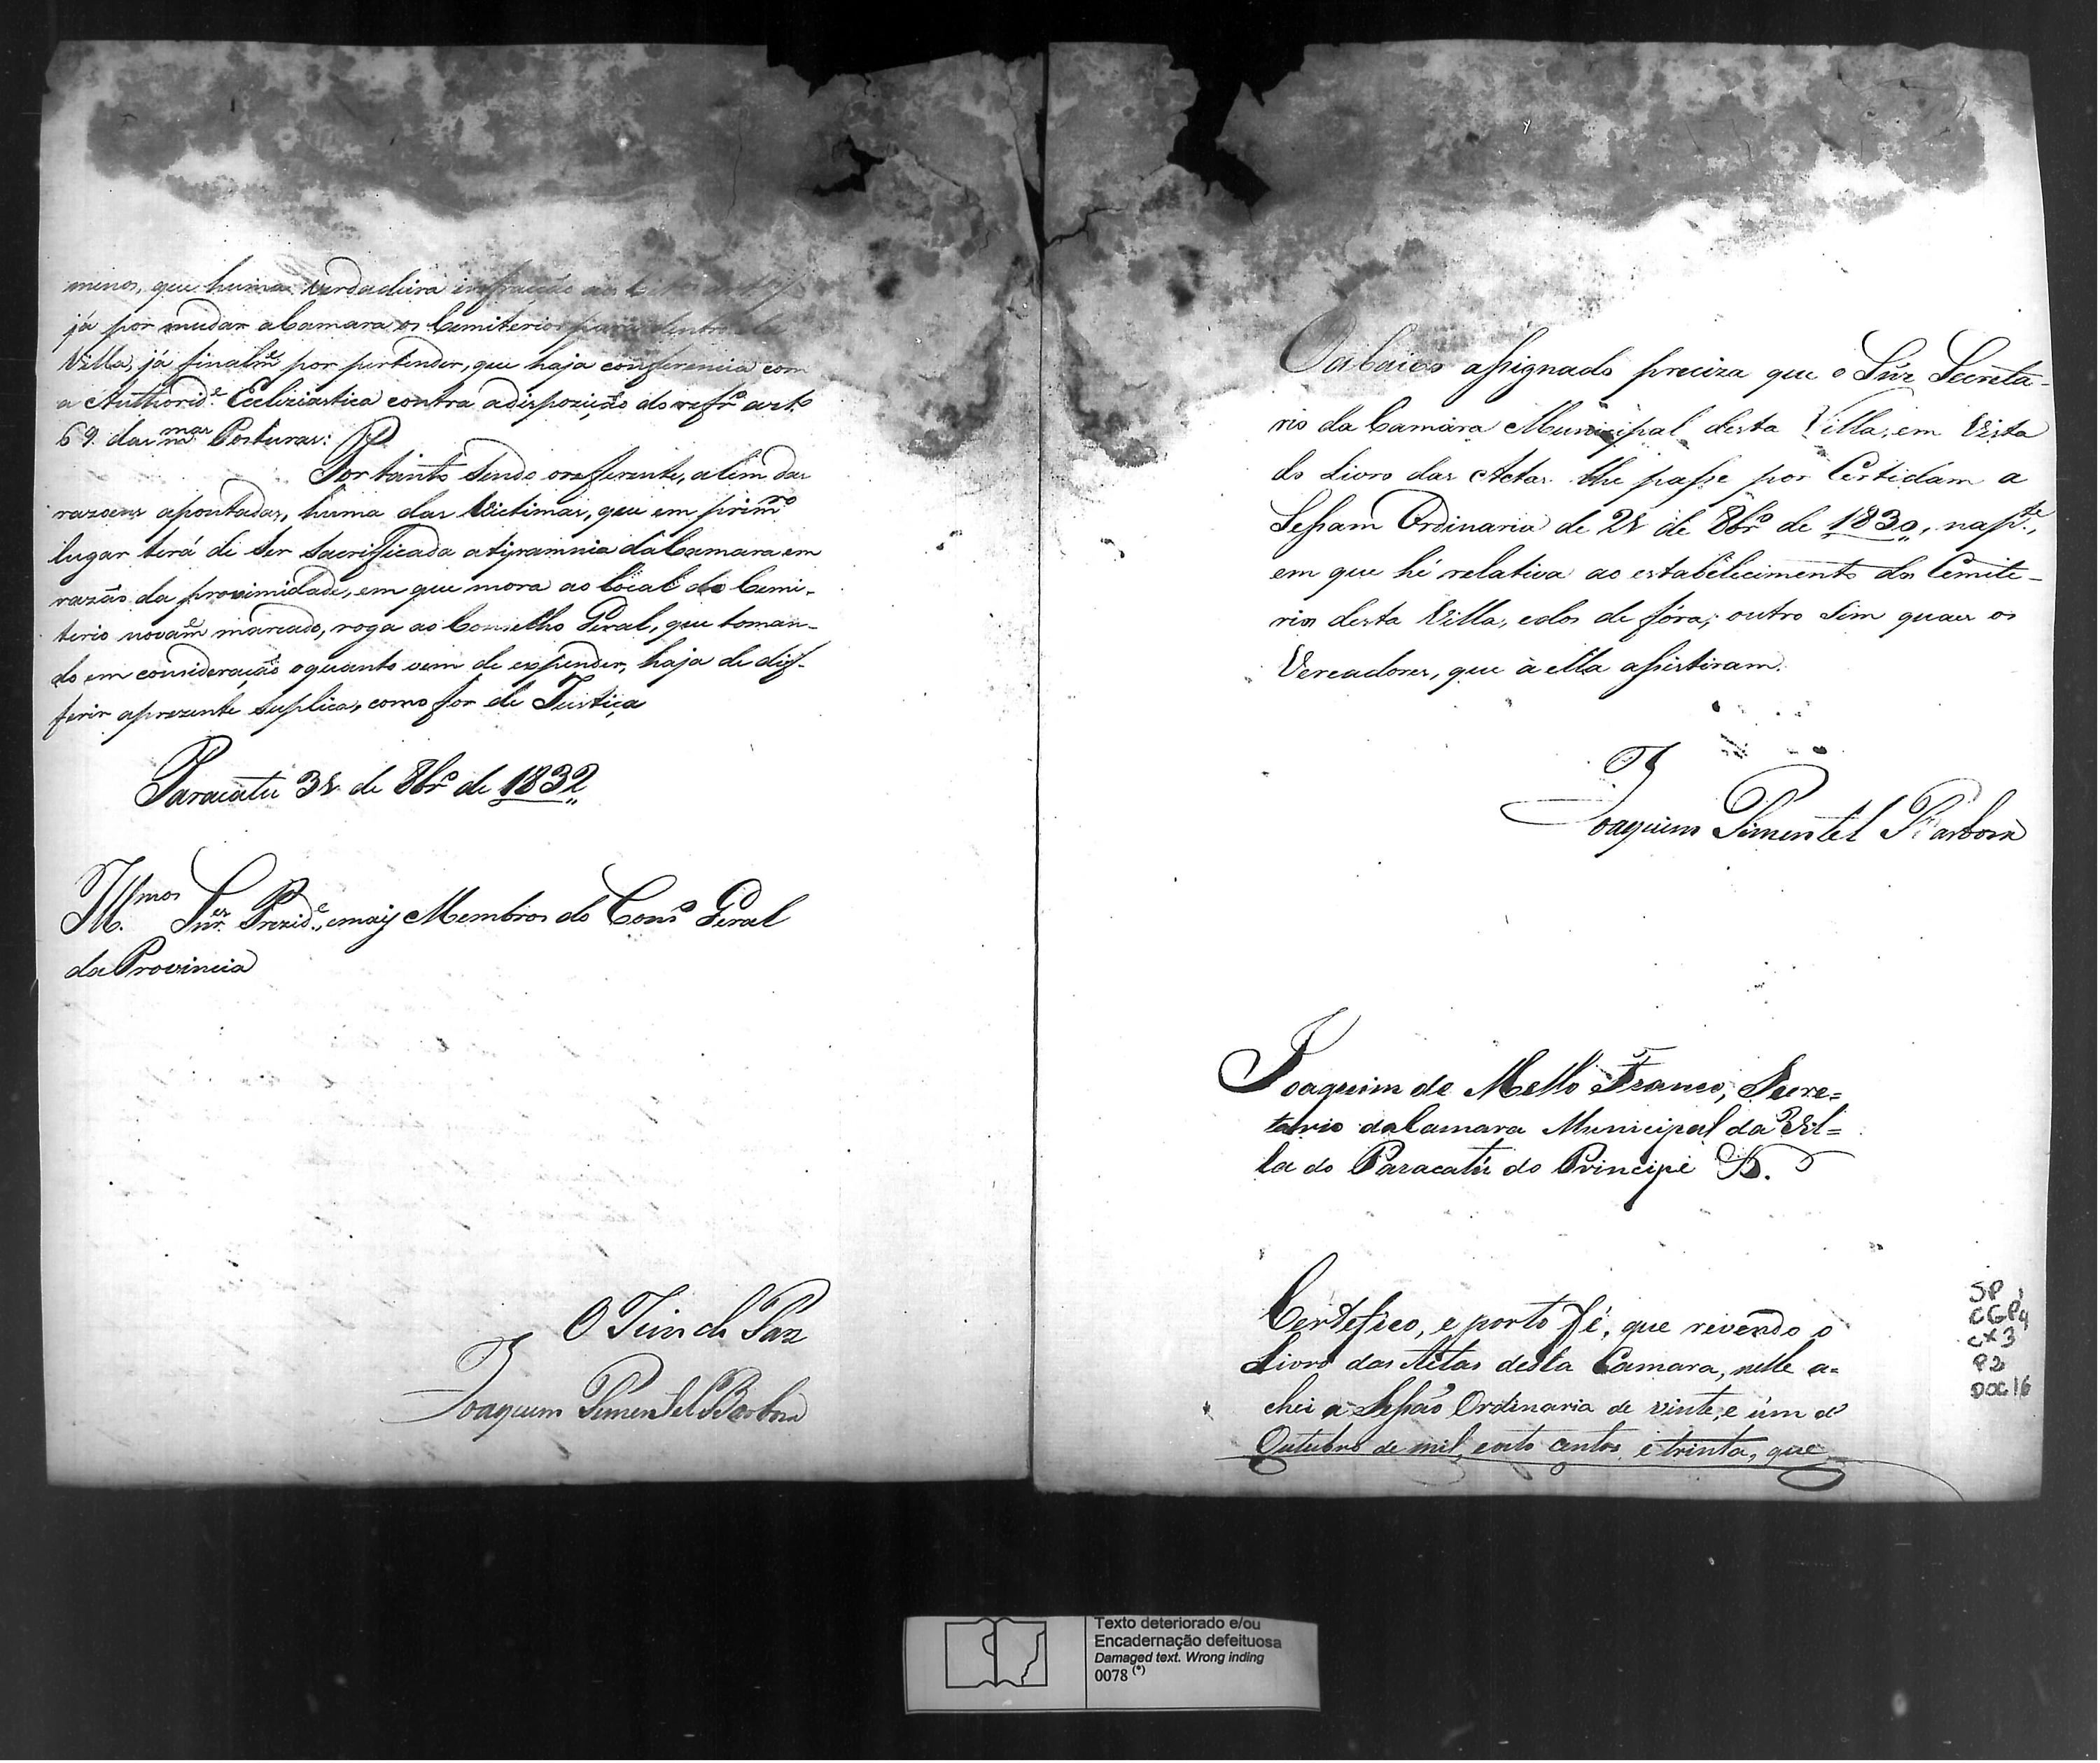 menos, que huma verdadeira infracção
já por mudar a Camara os Cemiterios para dentro da
Villa, já finalm.e por pertender, que haja conferencia com
a Authorid.e Ecleziastica contra a dispozição do refr.o art.o
69. das m.mas Posturas:
Portanto sendo o referente, alem das
razoens apontadas, huma das Victimas, que em prim.ro
lugar terá de ser sacrificada a tiramnia da Camara em
razão da proximidade, em que mora ao local do Cemi-
terio novam.e marcado, roga ao Conselho Geral, que toman-
do em consideração o quanto vem de expender, haja de dif-
ferir a prezente suplica, como for de Justiça
Paracatú 31 de 8br.o de 1832
Ill.mos Snr.es Prezid.e, e mais Membros do Cons.o Geral
da Provincia
O Juiz de Paz
Joaquim Pimentel Barboza
O abaixo assignado preciza que o Snr. Secreta-
rio da Camara Municipal desta Villa, em Vista
do Livro das Actas lhe passe por Certidam a
Sessam Ordinaria de 21 de 8br.o de 1830, na p.te,
em que hé relativa ao estabelecimento dos Cemite-
rios desta Villa, e dos de fóra; outro sim quaes os
Vereadores, que à ella assistiram.
Joaquim Pimentel Barboza
Joaquim de Mello Franco, Secre=
tario da Camara Municipal da Vil=
la do Paracatú do Principe &.
Certefico, e porto fé, que revendo o
Livro das Actas desta Camara, nelle a=
chei a Sessão Ordinaria de vinte, e úm d'
Outubro de mil, e oito centos, e trinta, que
SP
CGP4
CX3
P2
DOC16
Texto deteriorado e/ou
Encadernação defeituosa
Damaged text. Wrong inding
0078 (*)